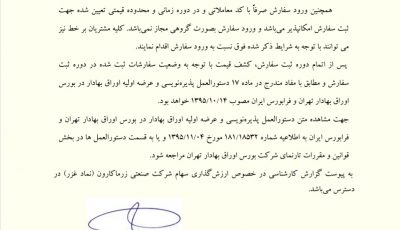 همچنین ورود سفارش صرفاً با کد معاملاتی و در دوره زمانی و محدوده قیمتی تعیین شده جهت
ثبت سفارش امکانپذیر می‌باشد و ورود سفارش بصورت گروهی مجاز نمی‌باشد. کلیه مشتریان بر خط نیز
می توانند با توجه به شرایط ذکر شده فوق نسبت به ورود سفارش اقدام نمایند.
پس از اتمام دوره ثبت سفارش، کشف قیمت با توجه به وضعیت سفارشات ثبت شده در دوره ثبت
سفارش و مطابق با مفاد مندرج در ماده ۱۷ دستورالعمل پذیره‌نویسی و عرضه اولیه اوراق بهادار در بورس
اوراق بهادار تهران و فرابورس ایران مصوب ۱۳۹۵/۱۰/۱۴ خواهد بود.
جهت مشاهده متن دستورالعمل پذیره‌نویسی و عرضه اولیه اوراق بهادار در بورس اوراق بهادار تهران و
فرابورس ایران به اطلاعیه شماره ۱۸۱/۱۸۵۳۲ مورخ ۱۳۹۵/۱۱/۰۴ و یا به قسمت دستورالعمل ها در بخش
قوانین و مقررات تارنمای شرکت بورس اوراق بهادار تهران مراجعه شود.
به پیوست گزارش کارشناسی در خصوص ارزش‌گذاری سهام شرکت صنعتی زرماکارون (نماد غزر) در
دسترس می‌باشد.